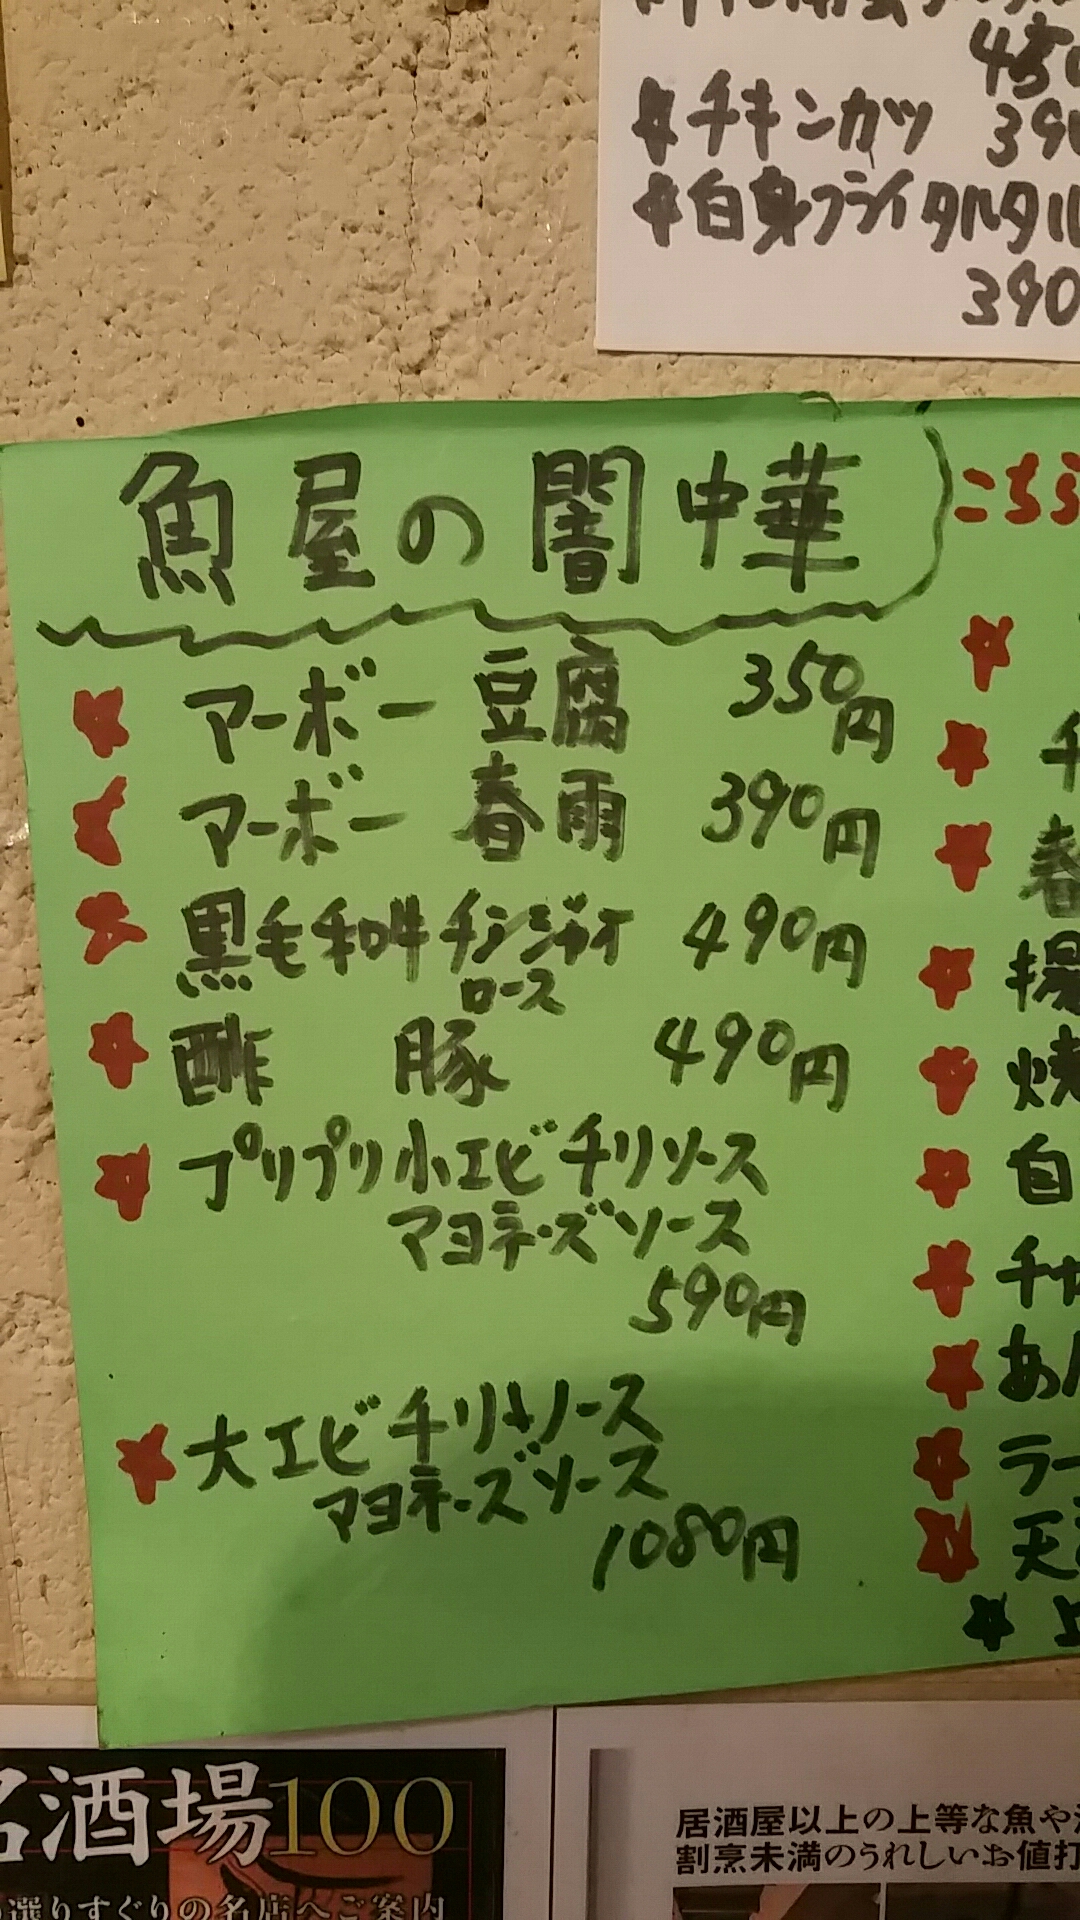 チキンカツ 390
白身フライタルタル
390
魚屋の闇中華
マーボー豆腐 350円
マーボー春雨 390円
黒毛和牛チンジャオ 490円
ロース
酢豚 490円
プリプリ小エビチリソース
マヨネーズソース
590円
大エビチリソース
マヨネーズソース
1080円
こちら
春
揚
焼
自
天
名酒場100
選りすぐりの名店へご案内
居酒屋以上の上等な魚や
割烹未満のうれしいお値打